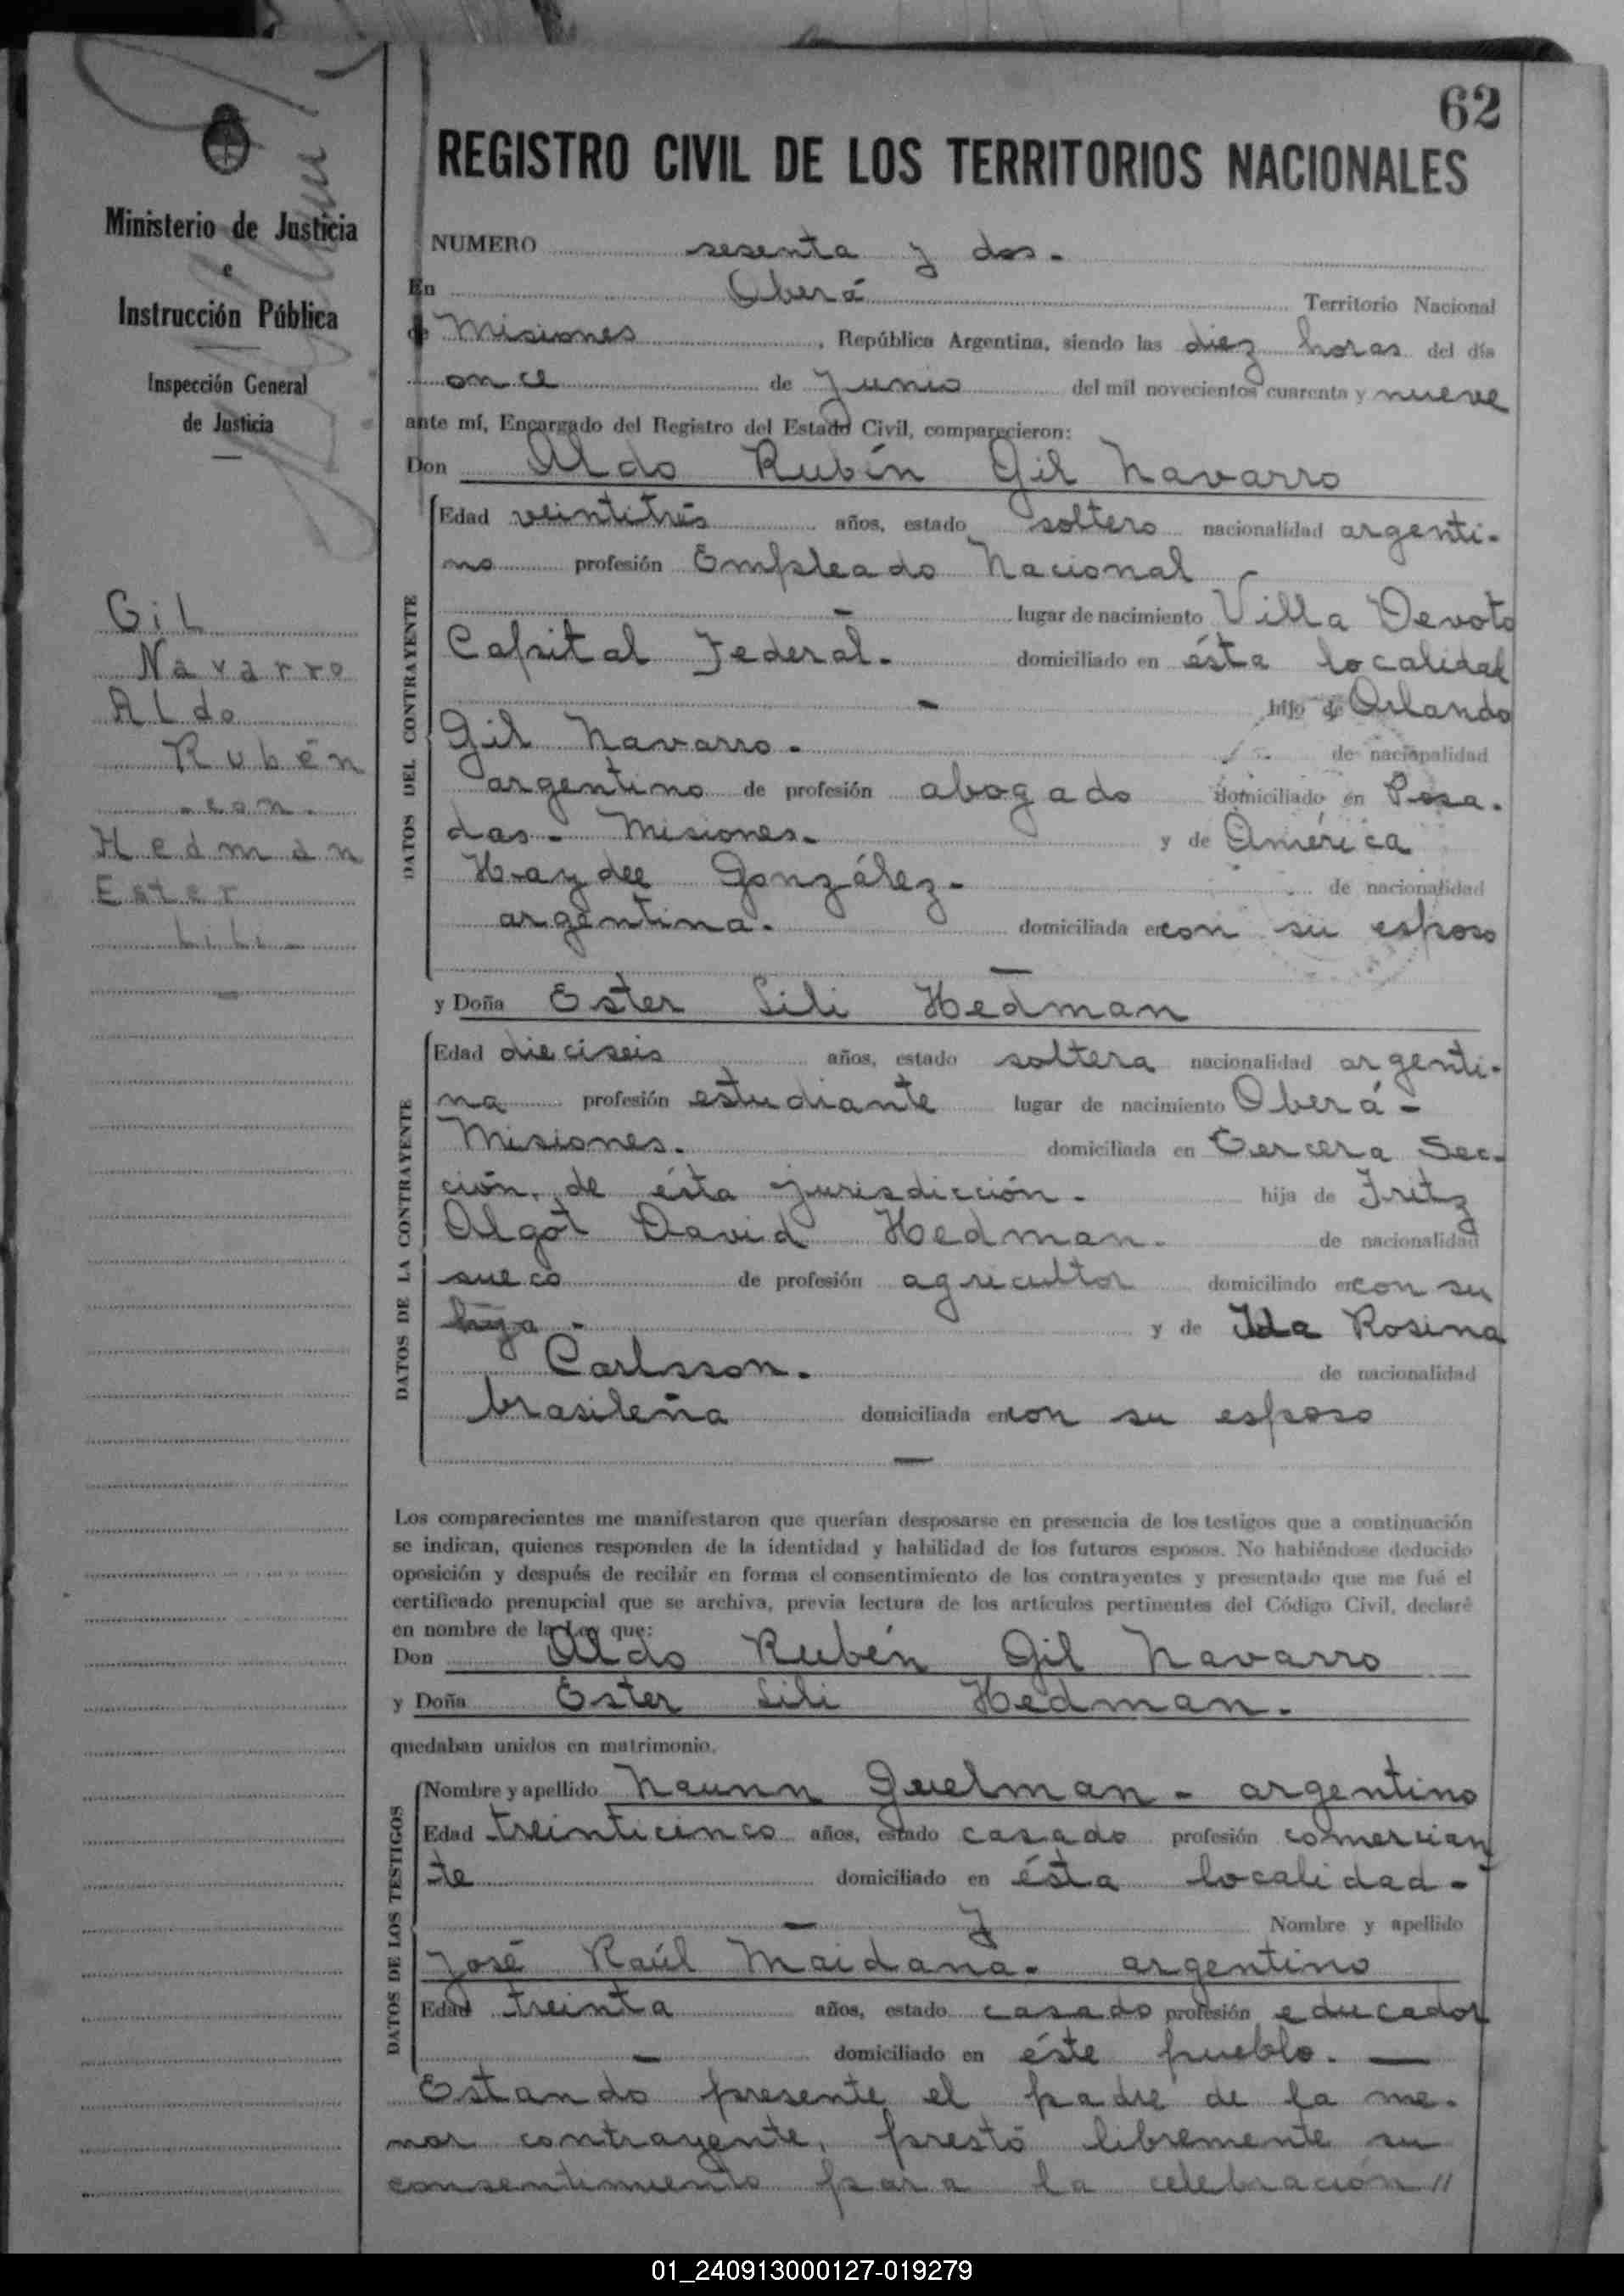 62
REGISTRO CIVIL DE LOS TERRITORIOS NACIONALES
Ministerio de Justicia
e
Instrucción Pública
Inspección General
de Justicia
Gil
Navarro
Aldo
Rubén
con
Hedman
Ester
Lili
NUMERO sesenta y dos.
En Oberá Territorio Nacional
de Misiones, República Argentina, siendo las diez horas del día
once de Junio del mil novecientos cuarenta y nueve
ante mí, Encargado del Registro del Estado Civil, comparecieron:
Don Aldo Rubín Gil Navarro
DATOS DEL CONTRAYENTE
Edad veintitrés años, estado soltero nacionalidad argenti-
no profesión Empleado Nacional
- lugar de nacimiento Villa Devoto
Capital Federal. domiciliado en ésta localidad
- hijo de Orlando
Gil Navarro. de nacionalidad
argentino de profesión abogado domiciliado en Posa-
das - Misiones. y de América
Haydee González. de nacionalidad
argentina. domiciliada en con su esposo
y Doña Ester Lili Hedman
DATOS DE LA CONTRAYENTE
Edad dieciseis años, estado soltera nacionalidad argenti-
na profesión estudiante lugar de nacimiento Oberá -
Misiones. domiciliada en Tercera Sec-
ción, de ésta jurisdicción. hija de Fritz
Algot David Hedman. de nacionalidad
sueco de profesión agricultor domiciliado en con su
hija. y de Ida Rosina
Carlsson. de nacionalidad
brasileña domiciliada en con su esposo
Los comparecientes me manifestaron que querían desposarse en presencia de los testigos que a continuación
se indican, quienes responden de la identidad y habilidad de los futuros esposos. No habiéndose deducido
oposición y después de recibir en forma el consentimiento de los contrayentes y presentado que me fué el
certificado prenupcial que se archiva, previa lectura de los artículos pertinentes del Código Civil, declaré
en nombre de la Ley que:
Don Aldo Rubén Gil Navarro
y Doña Ester Lili Hedman.
quedaban unidos en matrimonio.
DATOS DE LOS TESTIGOS
Nombre y apellido Naunn Guelman - argentino
Edad treinticinco años, estado casado profesión comercian
te domiciliado en ésta localidad -
- y Nombre y apellido
José Raúl Maidana. argentino
Edad treinta años, estado casado profesión educador
- domiciliado en éste pueblo. —
Estando presente el padre de la me-
nor contrayente, prestó libremente su
consentimiento para la celebración //
01_240913000127-019279